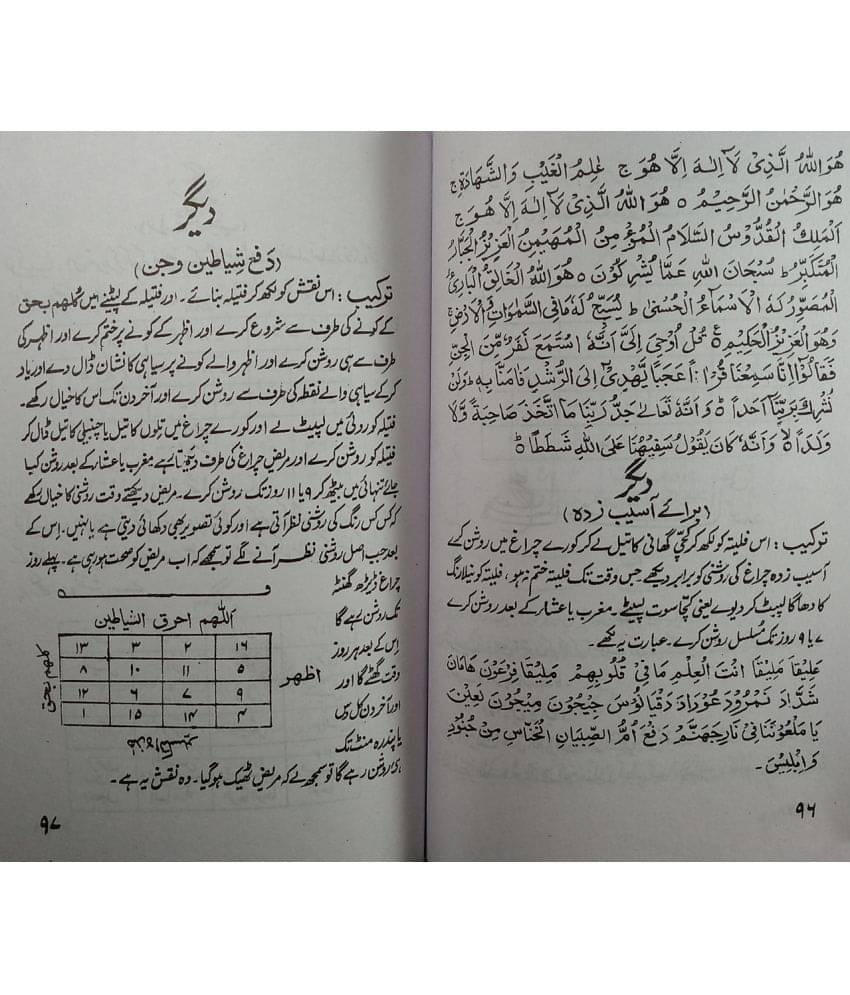 هُوَ اللّٰهُ الَّذِیْ لَآ اِلٰهَ اِلَّا هُوَ ج عٰلِمُ الْغَیْبِ وَالشَّهَادَةِ ج
هُوَ الرَّحْمٰنُ الرَّحِیْمُ ○ هُوَ اللّٰهُ الَّذِیْ لَآ اِلٰهَ اِلَّا هُوَ ج
اَلْمَلِكُ الْقُدُّوْسُ السَّلَامُ الْمُؤْمِنُ الْمُهَیْمِنُ الْعَزِیْزُ الْجَبَّارُ
الْمُتَكَبِّرُ ط سُبْحَانَ اللّٰهِ عَمَّا یُشْرِكُوْنَ ○ هُوَ اللّٰهُ الْخَالِقُ الْبَارِئُ
الْمُصَوِّرُ لَهُ الْاَسْمَآءُ الْحُسْنٰی ط یُسَبِّحُ لَهٗ مَا فِی السَّمٰوٰتِ وَالْاَرْضِ ج
وَهُوَ الْعَزِیْزُ الْحَكِیْمُ ○ قُلْ اُوْحِیَ اِلَیَّ اَنَّهُ اسْتَمَعَ نَفَرٌ مِّنَ الْجِنِّ
فَقَالُوْٓا اِنَّا سَمِعْنَا قُرْاٰنًا عَجَبًا یَّهْدِیْٓ اِلَی الرُّشْدِ فَاٰمَنَّا بِهٖ ط وَلَنْ
نُّشْرِكَ بِرَبِّنَآ اَحَدًا ○ وَاَنَّهٗ تَعَالٰی جَدُّ رَبِّنَا مَا اتَّخَذَ صَاحِبَةً وَّلَا
وَلَدًا ○ وَاَنَّهٗ كَانَ یَقُوْلُ سَفِیْهُنَا عَلَی اللّٰهِ شَطَطًا ○
دیگر
(برائے آسیب زدہ)
ترکیب: اس فلیتہ کو لکھ کر کچی گھانی کا تیل لے کر کورے چراغ میں روشن کرے
آسیب زدہ چراغ کی روشنی کو برابر دیکھے۔ جس وقت تک فلیتہ ختم نہ ہو، فلیتہ کو نیلا رنگ
کا دھاگا لپیٹ کر دیوے یعنی کچا سوت لپیٹے۔ مغرب یا عشاء کے بعد روشن کرے
۷ یا ۹ روز تک مسلسل روشن کرے۔ عبارت یہ لکھے۔
عَلِیْقًا مَلِیْقًا اَنْتَ الْعِلْمِ مَا فِیْ قُلُوْبِهِمْ مَلِیْقًا فِرْعَوْنَ هَامَانَ
شَدَّادَ نَمْرُوْدَ عَوْدَادَ دَقْیَانُوْسَ جَیْحُوْنَ مَیْحُوْنَ لَعِیْنَ
یَا مَلْعُوْنَنَا فِیْ نَارِ جَهَنَّمَ دَفَعَ اُمُّ الصِّبْیَانِ الْخَنَّاسِ مِنْ جُنُوْدِ
وَاِبْلِیْسَ۔
۹۶
دیگر
(دفع شیاطین و جن)
ترکیب: اس نقش کو لکھ کر فتیلہ بنائے۔ اور فتیلہ کے لپٹنے میں کلهم بحق
کے کونے کی طرف سے شروع کرے اور اظہر کے کونے پر ختم کرے اور اظہر کی
طرف سے ہی روشن کرے اور اظہر والے کونے پر سیاہی کا نشان ڈال دے اور یاد
کر کے سیاہی والے نقطہ کی طرف سے روشن کرے اور آخر دن تک اس کا خیال رکھے۔
فتیلہ کو روئی میں لپیٹ لے اور کورے چراغ میں تلوں کا تیل یا چنبیلی کا تیل ڈال کر
فتیلہ کو روشن کرے اور مریض چراغ کی طرف دیکھتا رہے مغرب یا عشاء کے بعد روشن کیا
جائے تنہائی میں بیٹھ کر ۹ یا ۱۱ روز تک روشن کرے۔ مریض دیکھتے وقت روشنی کا خیال رکھے
کہ کس کس رنگ کی روشنی نظر آتی ہے اور کوئی تصویر بھی دکھائی دیتی ہے یا نہیں۔ اس کے
بعد جب اصل روشنی نظر آنے لگے تو سمجھے کہ اب مریض کو صحت ہو رہی ہے۔ پہلے روز
چراغ ڈیڑھ گھنٹہ
تک روشن رہے گا
اس کے بعد ہر روز
وقت گھٹے گا اور
اور آخر دن کل دس
یا پندرہ منٹ تک
ہی روشن رہے گا تو سمجھ لے کہ مریض ٹھیک ہو گیا۔ وہ نقش یہ ہے۔
اللهم احرق الشیاطین
۱۳ ۳ ۲ ۱۶
۸ ۱۰ ۱۱ ۵
۱۲ ۶ ۷ ۹
۱ ۱۵ ۱۴ ۴
اظهر
کلهم بحق
۹۷